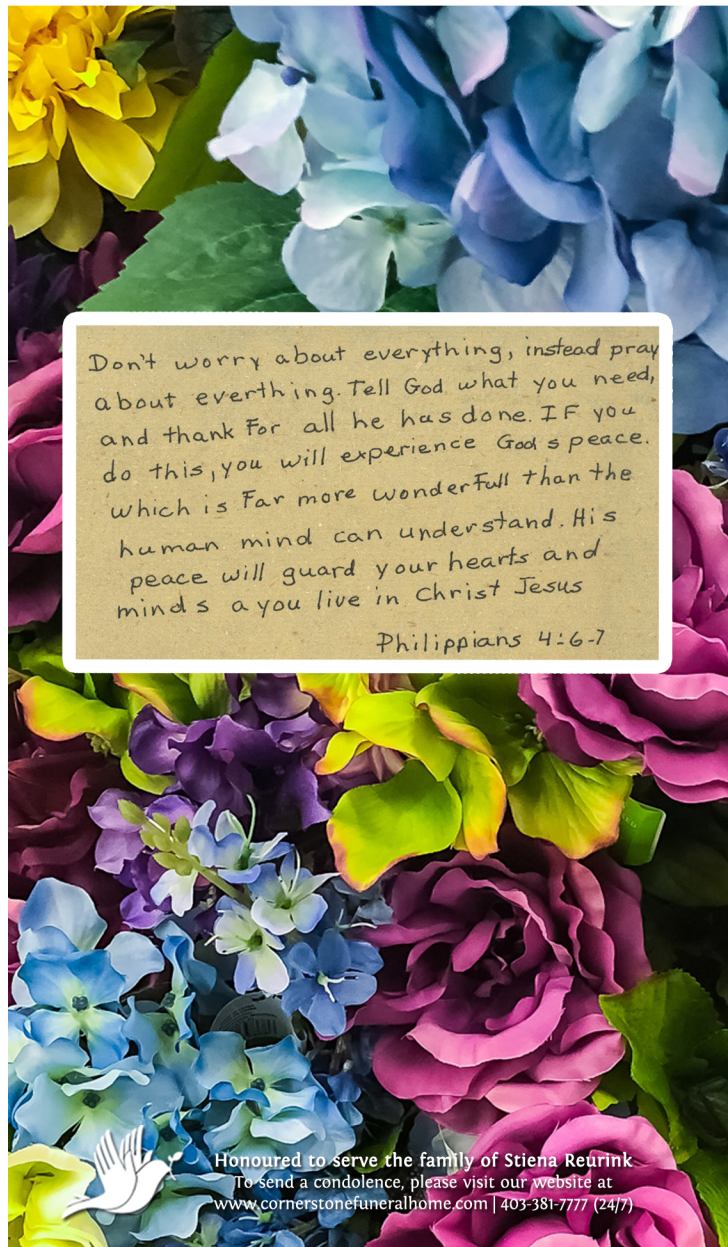 Don't worry about everything, instead pray
about everthing. Tell God what you need,
and thank For all he has done. IF you
do this, you will experience God s peace.
which is Far more wonderFull than the
human mind can understand. His
peace will guard your hearts and
minds a you live in Christ Jesus
Philippians 4:6-7
Honoured to serve the family of Stiena Reurink
To send a condolence, please visit our website at
www.cornerstonefuneralhome.com | 403-381-7777 (24/7)